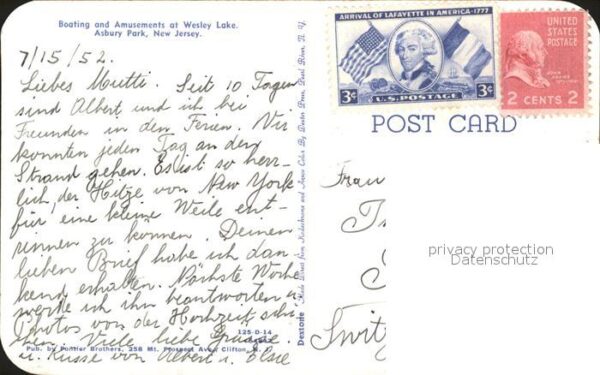 Boating and Amusements at Wesley Lake.
Asbury Park, New Jersey.
7/15/52.
Liebes Mutti. Seit 10 Tagen
sind Albert und ich bei
Freunden in den Ferien. Wir
konnten jeden Tag an den
Strand gehen. Es ist so herr-
lich der Hitze von New York
für eine kleine Weile ent-
rinnen zu können. Deinen
lieben Brief habe ich dan-
kend erhalten. Nächste Woche
werde ich ihn beantworten u.
Photos von der Hochzeit schi-
cken. Viele liebe Grüsse
u. Küsse von Albert u. Elsie
125-D-14
Pub. by Pontier Brothers, 258 Mt. Prospect Ave., Clifton, N. J.
Dextone Made Direct from Kodachrome and Ansco Color By Dexter Press, Pearl River, N. Y.
ARRIVAL OF LAFAYETTE IN AMERICA-1777
3¢ U.S. POSTAGE 3¢
UNITED
STATES
POSTAGE
JOHN
ADAMS
2 CENTS 2
POST CARD
Frau
privacy protection
Datenschutz